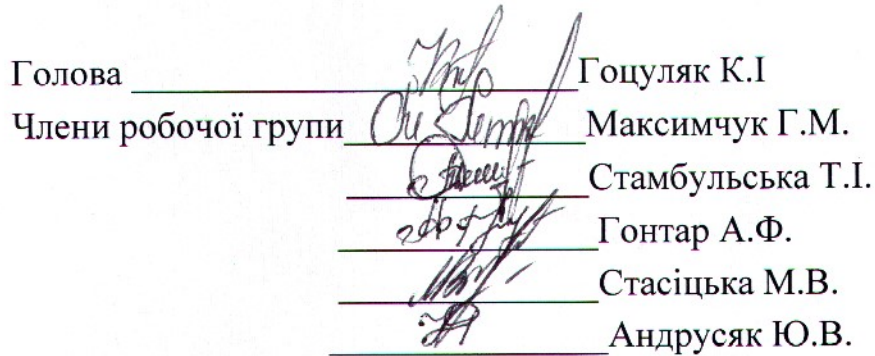 Голова Гоцуляк К.І
Члени робочої групи Максимчук Г.М.
Стамбульська Т.І.
Гонтар А.Ф.
Стасіцька М.В.
Андрусяк Ю.В.